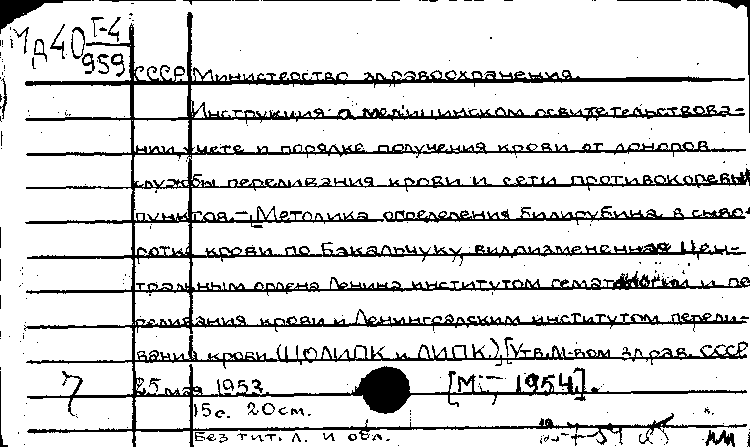 Мд40 Г-4
959
СССР Министерство здравоохранения.
Инструкция о медицинском освидетельствова-
нии, учете и порядке получения крови от доноров
службы переливания крови и сети противокоревых
пунктов.- Методика определения билирубина в сыво-
ротке крови по Бакальчуку, видоизмененная Цен-
тральным ордена Ленина институтом гематологии и пе
реливания крови и Ленинградским институтом перели-
вания крови (ЦОЛИПК и ЛИПК). [Утв. М-вом здрав. СССР
7 25 мая 1953.
[М., 1954].
15с. 20см.
Без тит. л. и обл.